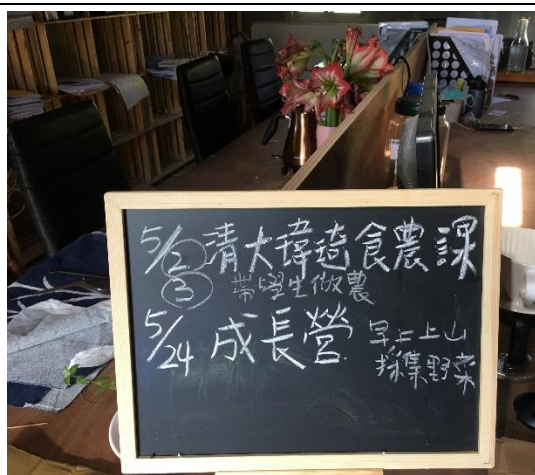 5/2 清大瑋琦食農課
3 帶學生做農
5/24 成長營 早上上山
採集野菜